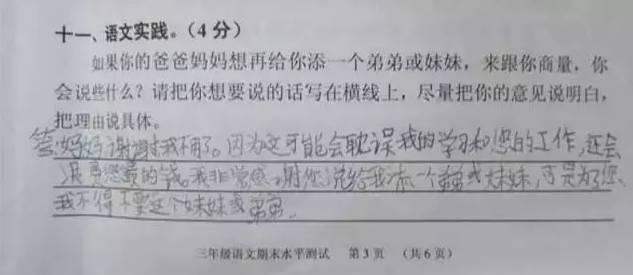 十一、语文实践。(4分)
如果你的爸爸妈妈想再给你添一个弟弟或妹妹，来跟你商量，你
会说些什么？请把你想要说的话写在横线上，尽量把你的意见说明白，
把理由说具体。
答:妈妈谢谢我不用了。因为这可能会耽误我的学习和您的工作,还会
浪费您的钱。我非常感谢您说给我添一个弟弟或妹妹,可是为了您、
我不得不要这个妹妹或弟弟。
三年级语文期末水平测试 第3页 （共6页）